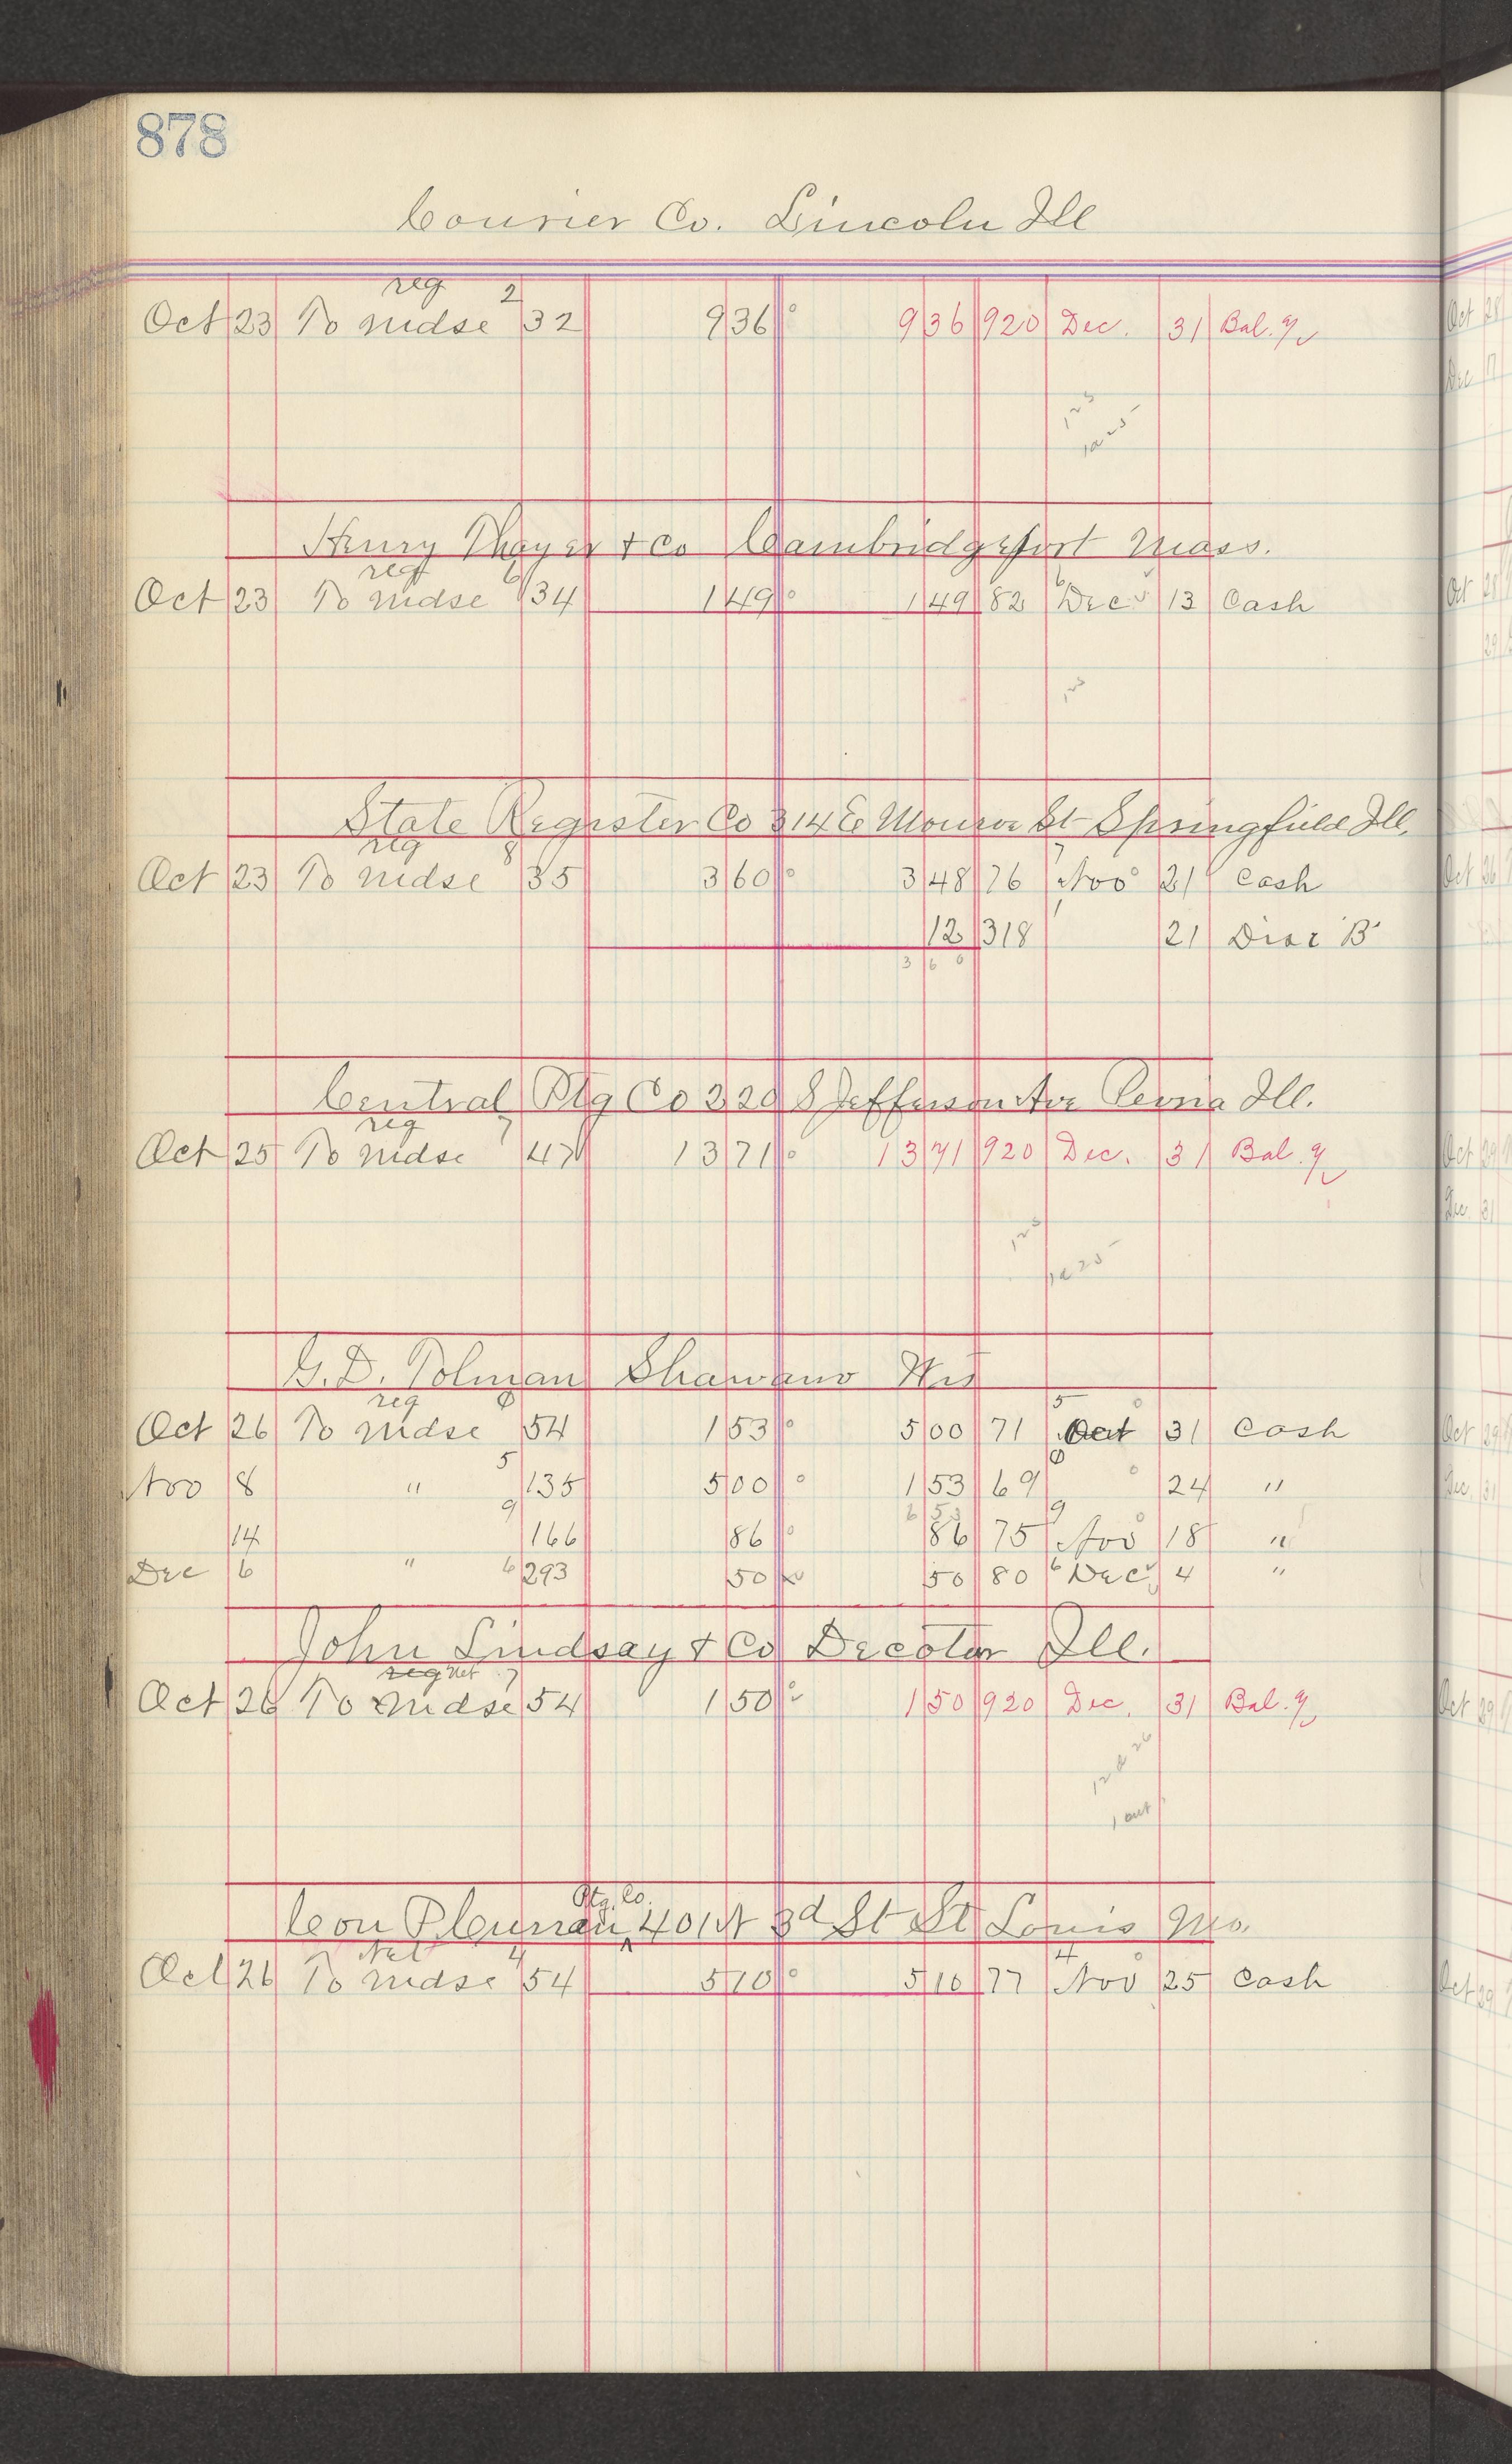 878
Courier Co. Lincoln Ill
reg 2
Oct 23 To mdse 32 9 36 9 36 920 Dec. 31 Bal.
Henry Thayer & Co Cambridgeport Mass.
reg 6
Oct 23 To mdse 34 1 49 1 49 82 6 Dec 13 Cash
State Register Co 314 E Monroe St Springfield Ill.
reg 8 7
Oct 23 To mdse 35 3 60 3 48 76 Nov 21 Cash
12 318 21 Disc "B"
3 6 0
Central Ptg Co 220 S Jefferson Ave Peoria Ill.
reg 7
Oct 25 To mdse 47 13 71 13 71 920 Dec. 31 Bal.
G. D. Tolman Shawano Wis
reg 0 5
Oct 26 To mdse 54 1 53 5 00 71 Oct 31 Cash
5 0
Nov 8 " 135 5 00 1 53 69 24 "
9 6 53 9
14 166 86 86 75 Nov 18 "
Dec 6 " 6 293 50 50 80 6 Dec 4 "
John Lindsay & Co Decotur Ill.
reg Net 7
Oct 26 To mdse 54 1 50 1 50 920 Dec. 31 Bal.
12 & 26
1 out
Ptg. Co.
Con 401 N 3d St St Louis Mo.
Net 4 4
Oct 26 To mdse 54 5 10 5 10 77 Nov 25 Cash